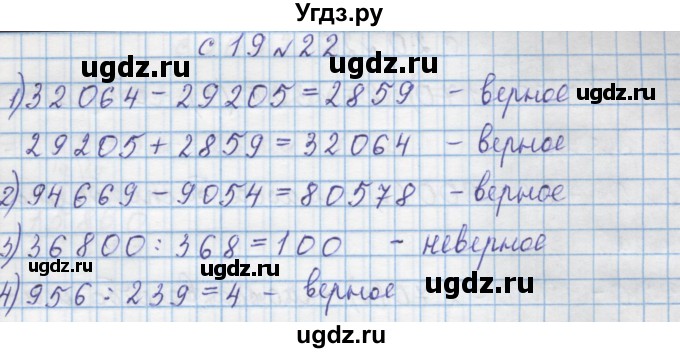 Угдз.ру
с 19 № 22
ugdz.ru ugdz.ru
1) 32064 - 29205 = 2859 - верное
ugdz.ru
29205 + 2859 = 32064 - верное
ugdz.ru ugdz.ru
2) 94669 - 9054 = 80578 - верное
3) 36800 : 368 = 100 - неверное
ugdz.ru ugdz.ru
4) 956 : 239 = 4 - верное
ugdz.ru
ugdz.ru